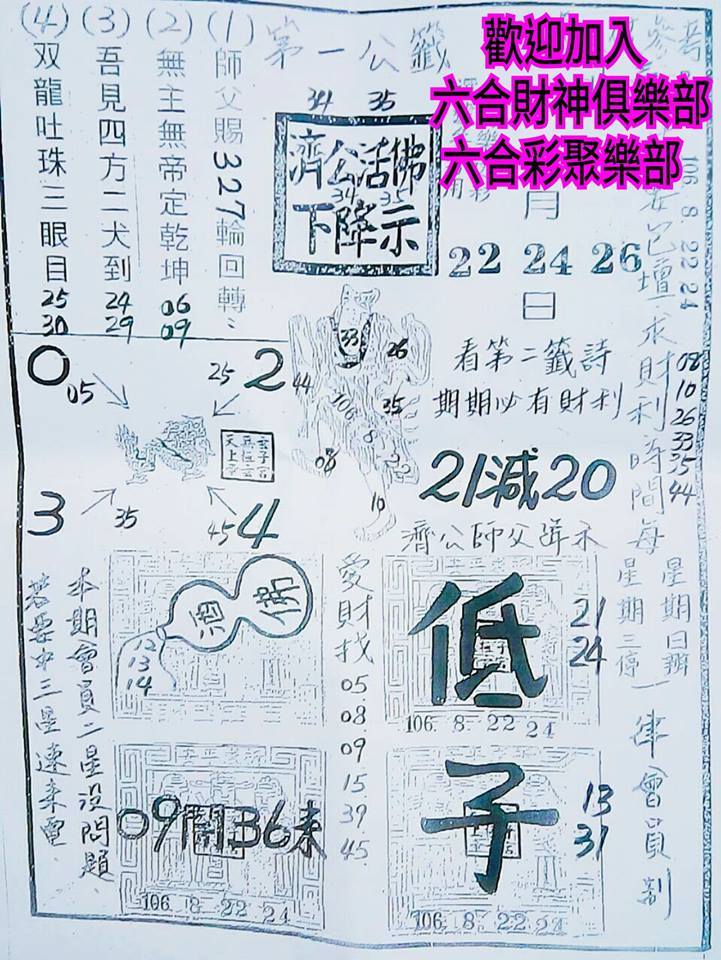 歡迎加入
六合財神俱樂部
六合彩聚樂部
第一公籤
(1)
師父賜327輪回轉
(2)
無主無帝定乾坤
06
09
(3)
吾見四方二犬到
24
29
(4)
双龍吐珠三眼目
25
30
34 35
濟公活佛
34 35
下降示
月
22 24 26
日
考
106 8 22 24
壇求財利時間每
星期日辦
星期三停
一律會員制
08
10
26
33
35
44
看第二籤詩
期期必有財利
21減20
濟公師父降示
0 05
25 2
3 35
45 4
33
26
44
35
106
8
22
08
10
佛
酒
12
13
14
愛財找
05
08
09
15
39
45
低
21
24
106. 8. 22 24
子
13
31
106. 8. 22 24
09鬧36来
106. 8. 22 24
本期會員二星没問題
若要中三星速来電